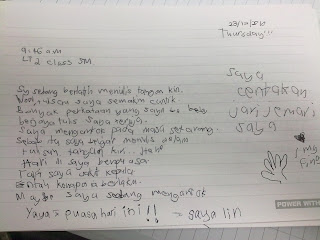 23/12/2010
Thursday!!!
9:46 am
LT 2 class SM
Sy sedang berlatih menulis tangan kiri.
tulisan saya semakin cantik
Banyak perkataan yang saya
berjaya tulis saya
Saya mengantuk pada masa sekarang.
Sebab tu saya tengah menulis dalam
tulisan tangan kiri. Haha
Hari ni saya berpuasa
Tapi saya sakit kepala
Entah kenapa
Maybe saya sedang mengantuk
Yaya = puasa hari ini!! = saya lin
saya
cintakan
jari jemari
saya
my
POWER WITH